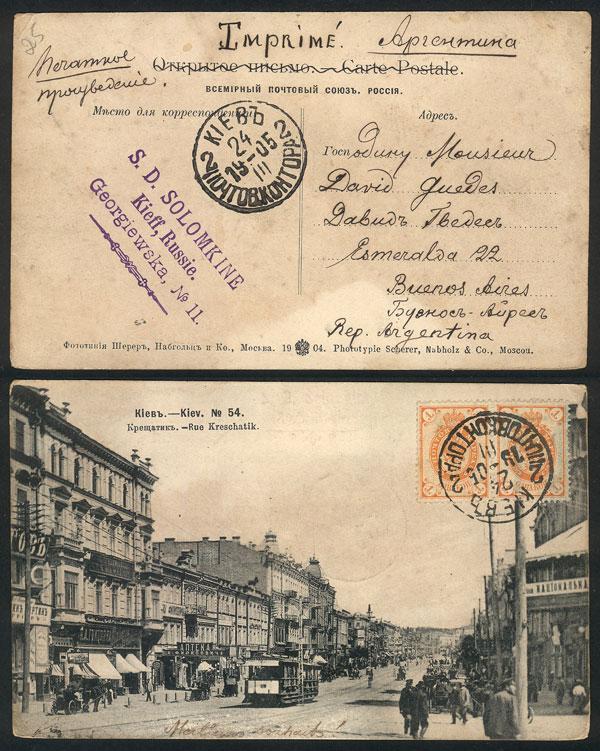 25
Imprimé. Аргентина
Печатное
произведеніе.
Открытое письмо. — Carte Postale.
ВСЕМІРНЫЙ ПОЧТОВЫЙ СОЮЗЪ. РОССІЯ.
Мѣсто для корреспонденціи. Адресъ.
КІЕВЪ
24 1 05
19 III
2 ПОЧТОВ.КОНТОРА 2
S. D. SOLOMKINE
Kieff, Russie.
Georgiewska, № 11.
Господину Monsieur
David Guedes
Давидъ Гведесъ
Esmeralda 22
Buenos Aires
Буеносъ-Айресъ
Rep. Argentina
Фототипія Шереръ, Набгольцъ и Ко., Москва. 19 04. Phototypie Scherer, Nabholz & Co., Moscou.
Кіевъ.—Kiev. № 54.
Крещатикъ. —Rue Kreschatik.
1 1
КІЕВЪ
24 1 05
19 III
2 ПОЧТОВ.КОНТОРА 2
АПТЕКА
НАЦІОНАЛЬНА